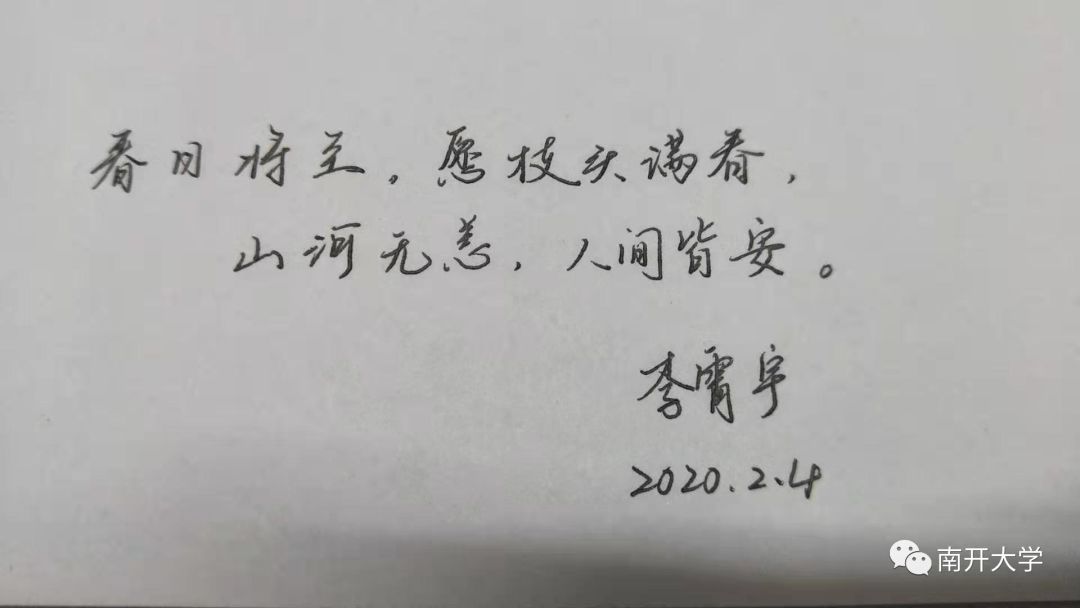 春日将至。愿枝头满春,
山河无恙,人间皆安。
李霄宇
2020.2.4
南开大学